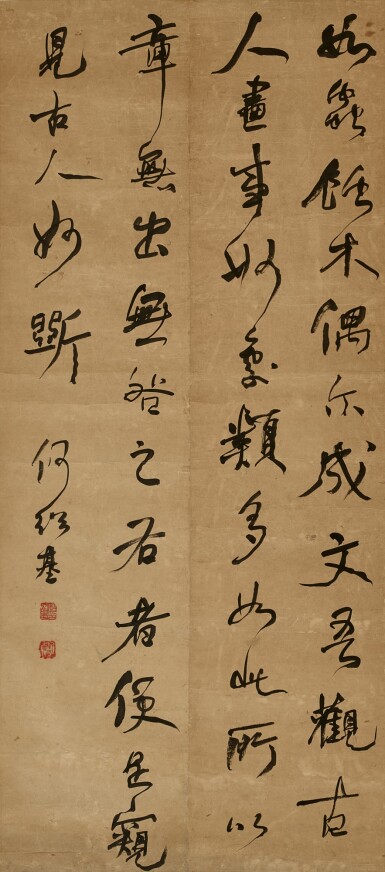 如蟲蝕木偶尔成文吾觀古
人畫事妙處類多如此所以
章無出無咎之右者便是窺
見古人妙斲
何紹基